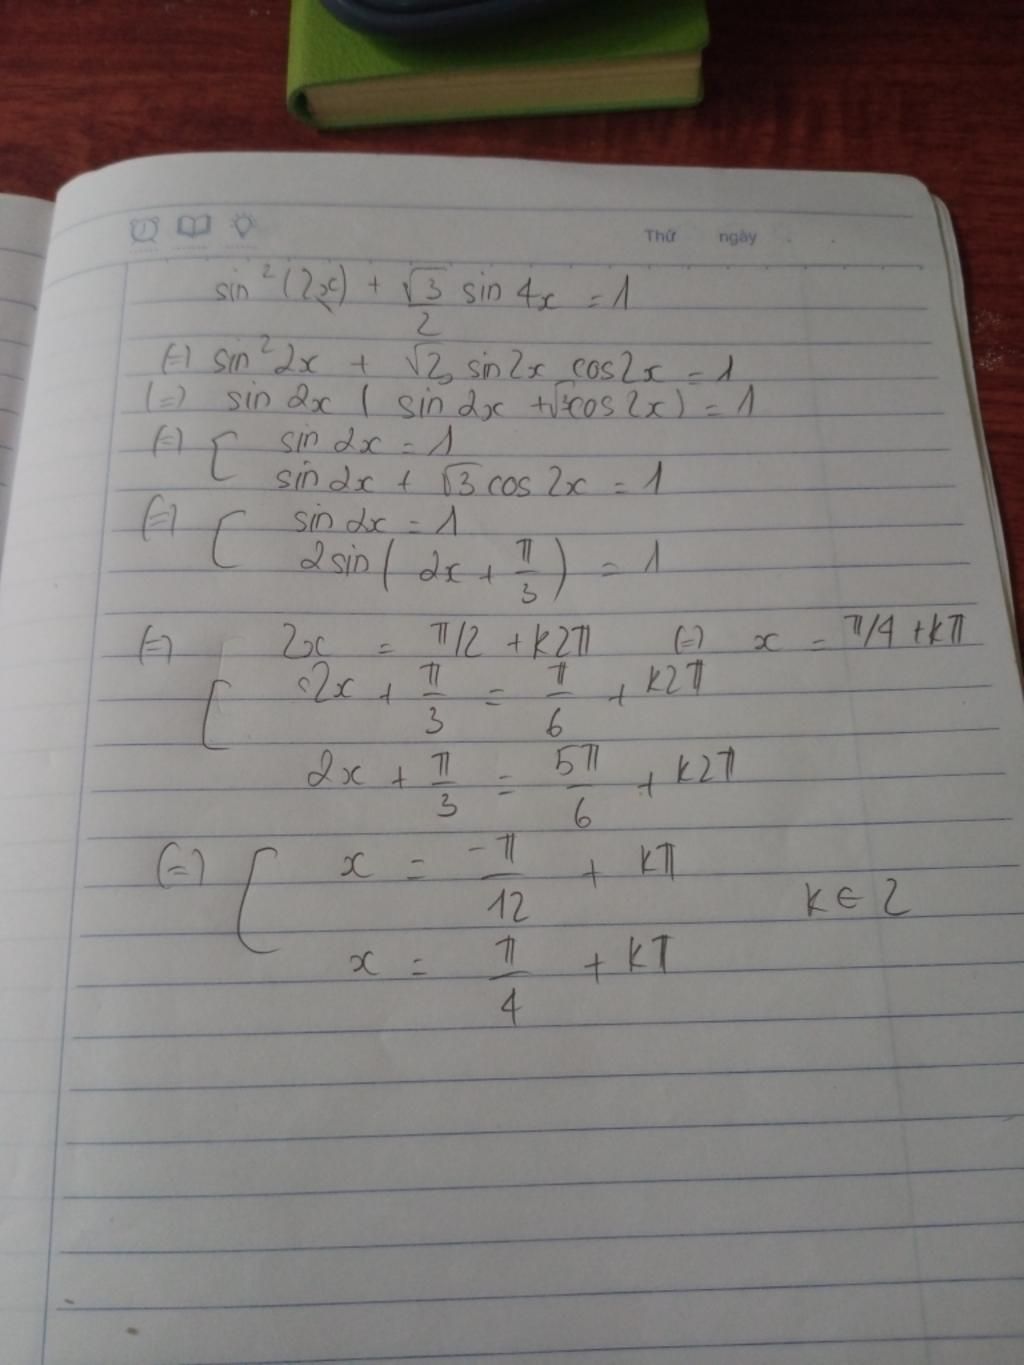 Thứ ngày
sin²(2x) + √3/2 sin 4x = 1
(=) sin²2x + √3 sin2x cos2x = 1
(=) sin 2x ( sin 2x + √3cos 2x) = 1
(=) [ sin 2x = 1
sin 2x + √3 cos 2x = 1
(=) [ sin 2x = 1
2sin( 2x + π/3 ) = 1
(=) 2x = π/2 + k2π (=) x = π/4 + kπ
[ 2x + π/3 = π/6 + k2π
2x + π/3 = 5π/6 + k2π
(=) [ x = -π/12 + kπ
k ∈ Z
x = π/4 + kπ